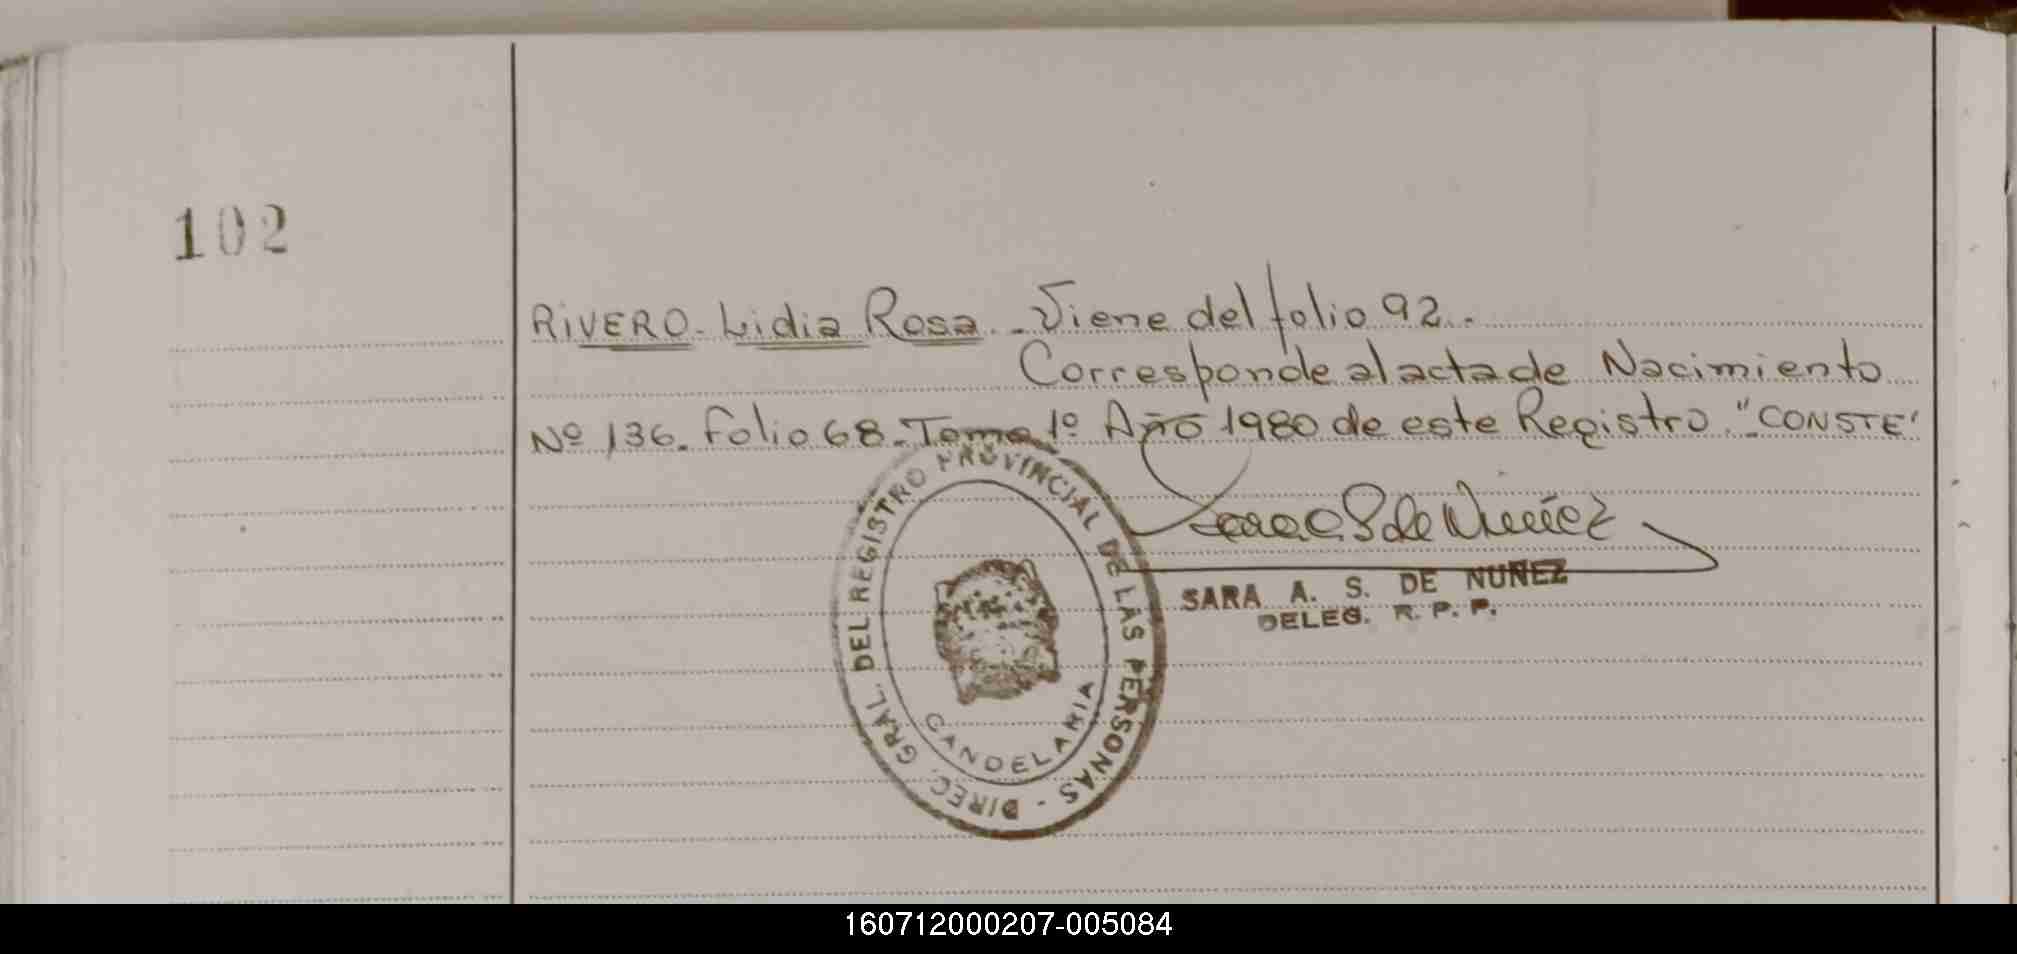 102
RIVERO - Lidia Rosa. - Viene del folio 92..
Corresponde al acta de Nacimiento
Nº 136. folio 68 - Tomo 1º Año 1980 de este Registro. "CONSTE"
Sara A S de Nuñez
SARA A. S. DE NUÑEZ
DELEG. R. P. P.
DIREC. GRAL. DEL REGISTRO PROVINCIAL DE LAS PERSONAS -
CANDELARIA
160712000207-005084